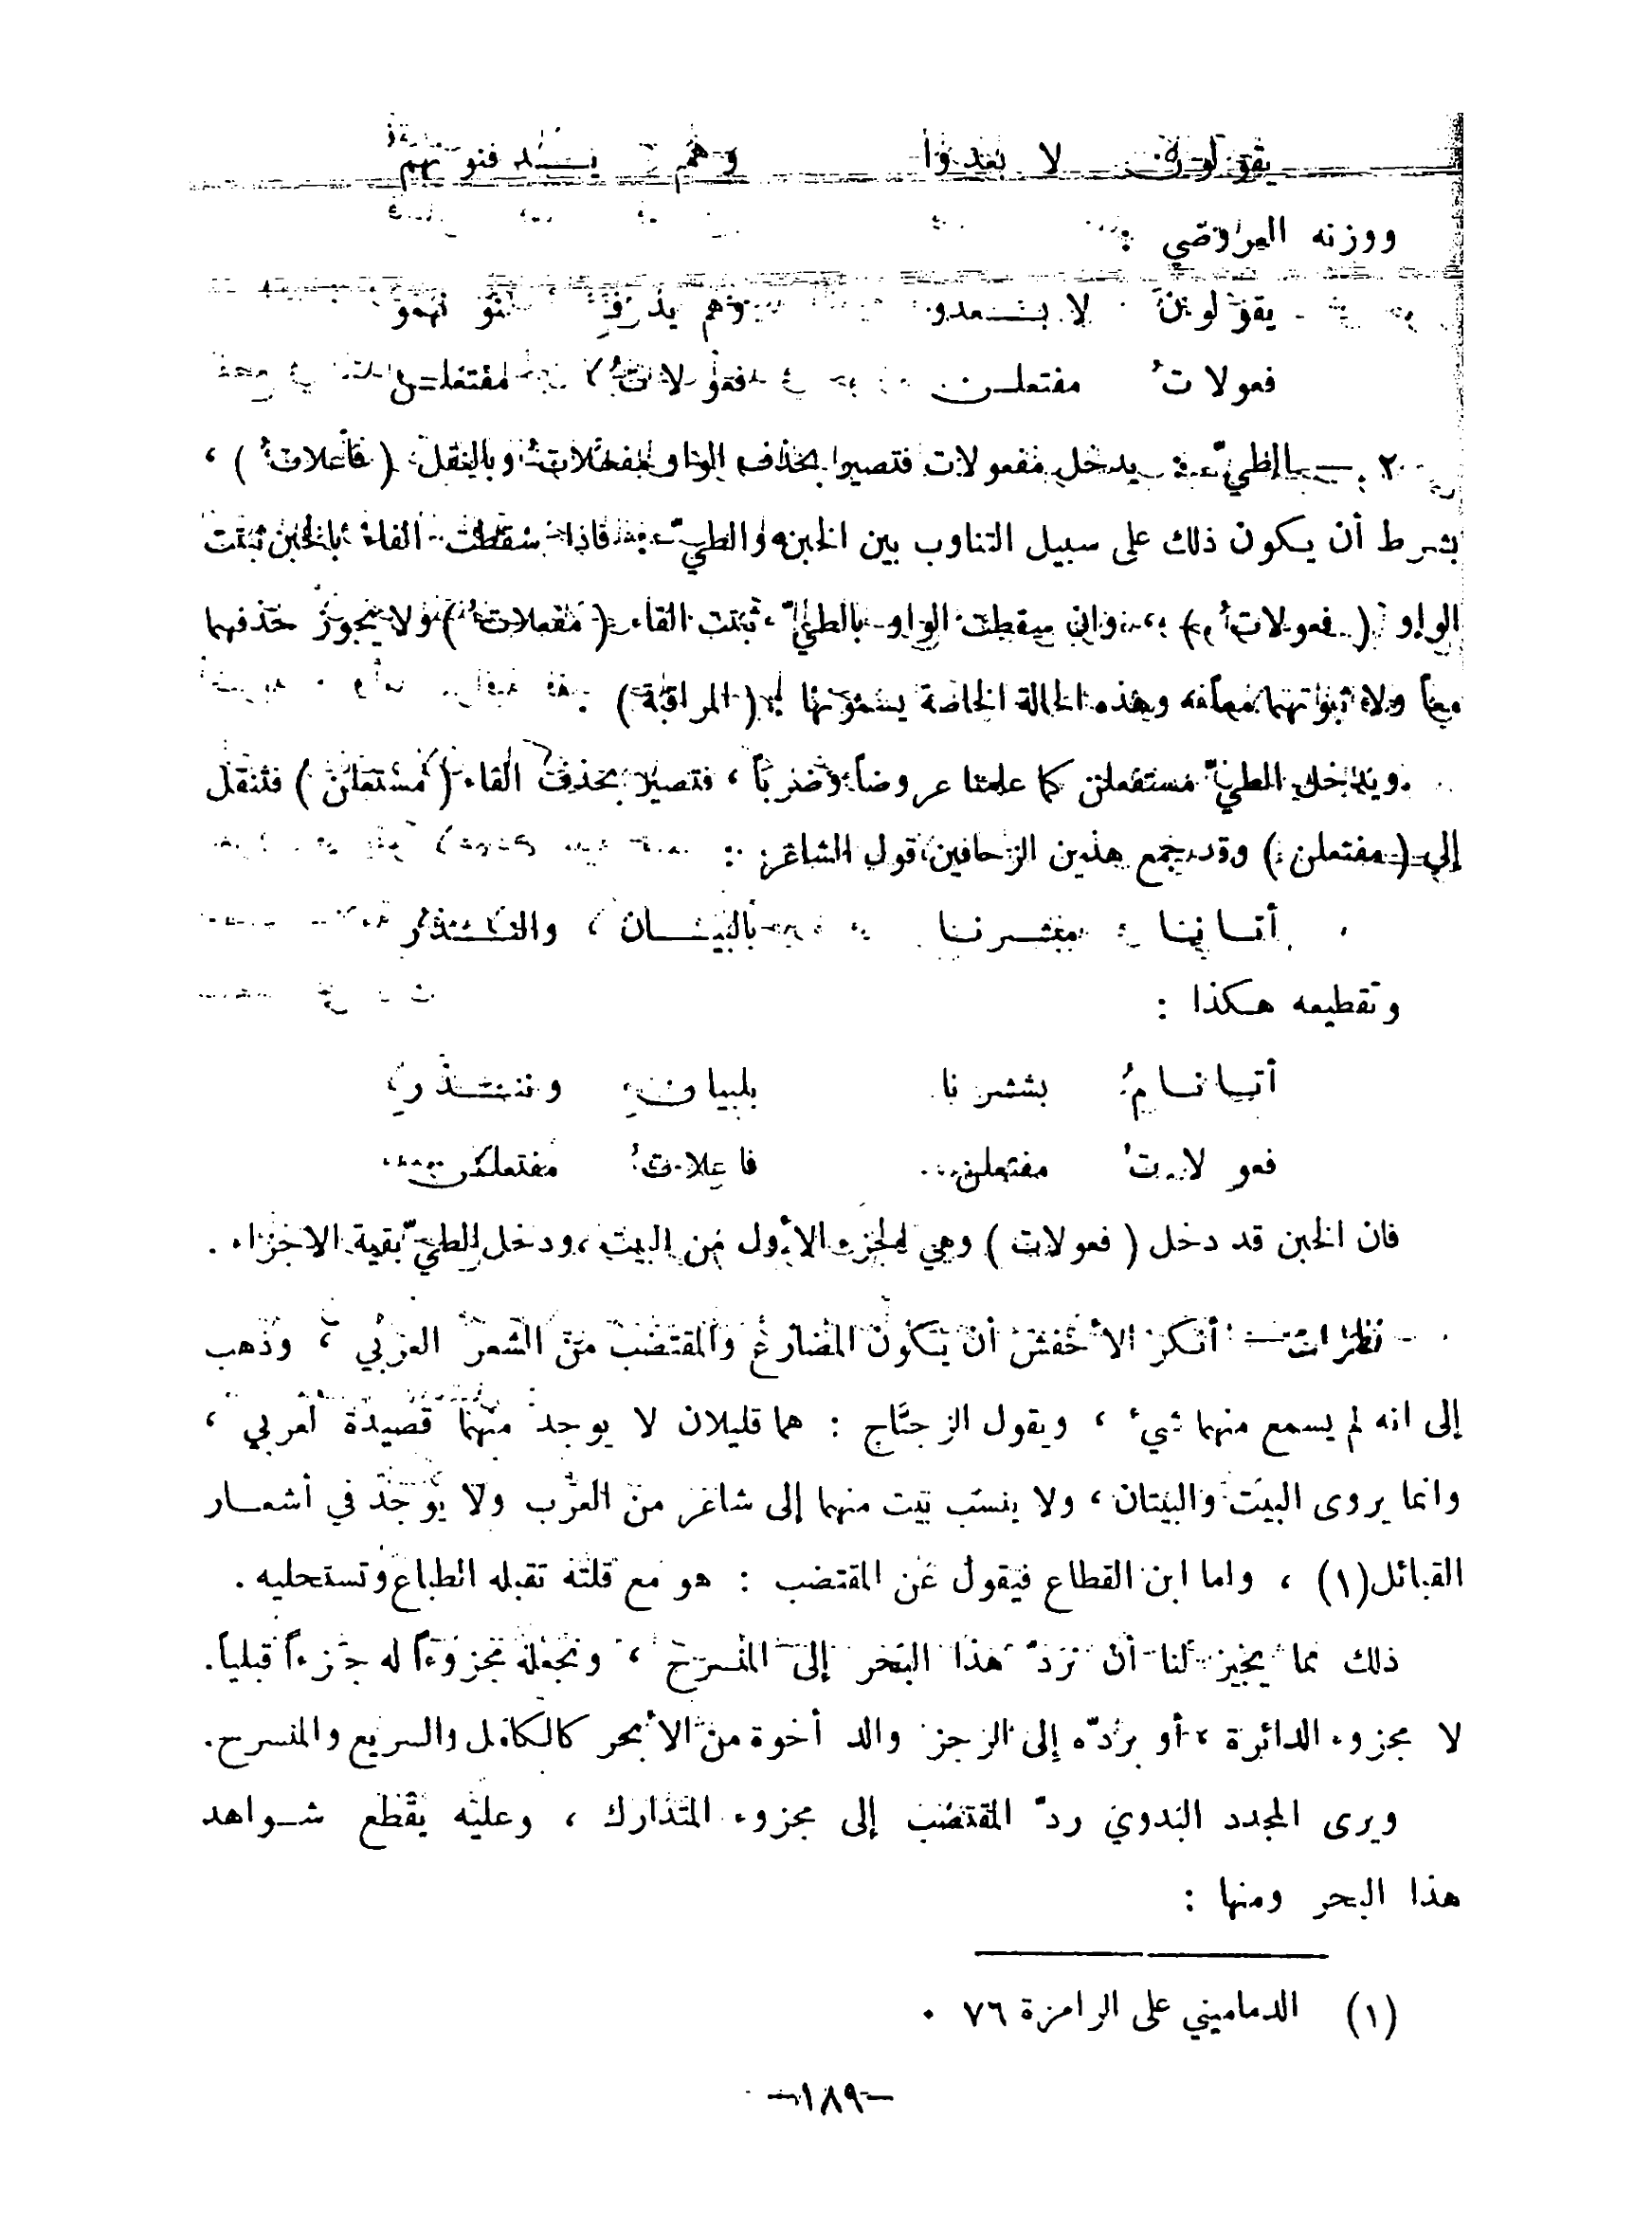 يقولون لا بعدوا وهم يدفنونهم
ووزنه العروضي :
يقولون لا بـعدو وهم يدف ننو نهمو
فعولاتُ مفتعلـن فعولاتُ مفتعلـن
٢ – الطيّ : يدخل مفعولات فتصير بحذف الواو مفعلات وبالنقل ( فاعلاتُ ) ،
بشرط أن يكون ذلك على سبيل التناوب بين الخبن والطيّ ، فاذا سقطت الفاء بالخبن ثبتت
الواو ( فعولاتُ ) ، وان سقطت الواو بالطيّ ثبتت الفاء ( مفعلاتُ ) ولا يجوز حذفهما
معاً ولا ثبوتهما معاً ، وهذه الحالة الخاصة يسمّونها بـ ( المراقبة ) .
ويدخل الطيّ مستفعلن كما علمنا عروضاً وضرباً ، فتصير بحذف الفاء ( مُسْتَعلن ) فتنقل
إلى ( مفتعلن ) وقد جمع هذين الزحافين قول الشاعر :
أتـانـا مبشـرنـا بالبيـان والنـذر
وتقطيعه هكذا :
أتـانـا مُ بششرنا بلبيان وننـذر
فعولاتُ مفتعلن فاعلاتُ مفتعلن
فان الخبن قد دخل ( فعولات ) وهي الجزء الأول من البيت ، ودخل الطيّ بقية الاجزاء .
نظرات – أنكر الأخفش أن يكون المضارع والمقتضب من الشعر العربي ، وذهب
إلى انه لم يسمع منهما شيء ، ويقول الزجّاج : هما قليلان لا يوجد منهما قصيدة لعربي ،
وانما يروى البيت والبيتان ، ولا ينسب بيت منهما إلى شاعر من العرب ولا يوجد في أشعـار
القبائل(١) ، واما ابن القطاع فيقول عن المقتضب : هو مع قلته تقبله الطباع وتستحليه .
ذلك مما يجيز لنا أن نردّ هذا البحر إلى المنسرح ، ونجعله مجزوءاً له جزءاً قبلياً .
لا مجزوء الدائرة ، أو بردّه إلى الرجز والد أخوة من الأبحر كالكامل والسريع والمنسرح .
ويرى المجدد البدوي ردّ المقتضب إلى مجزوء المتدارك ، وعليه يقطع شـواهد
هذا البحر ومنها :
(١) الدماميني على الرامزة ٧٦ .
–١٨٩–